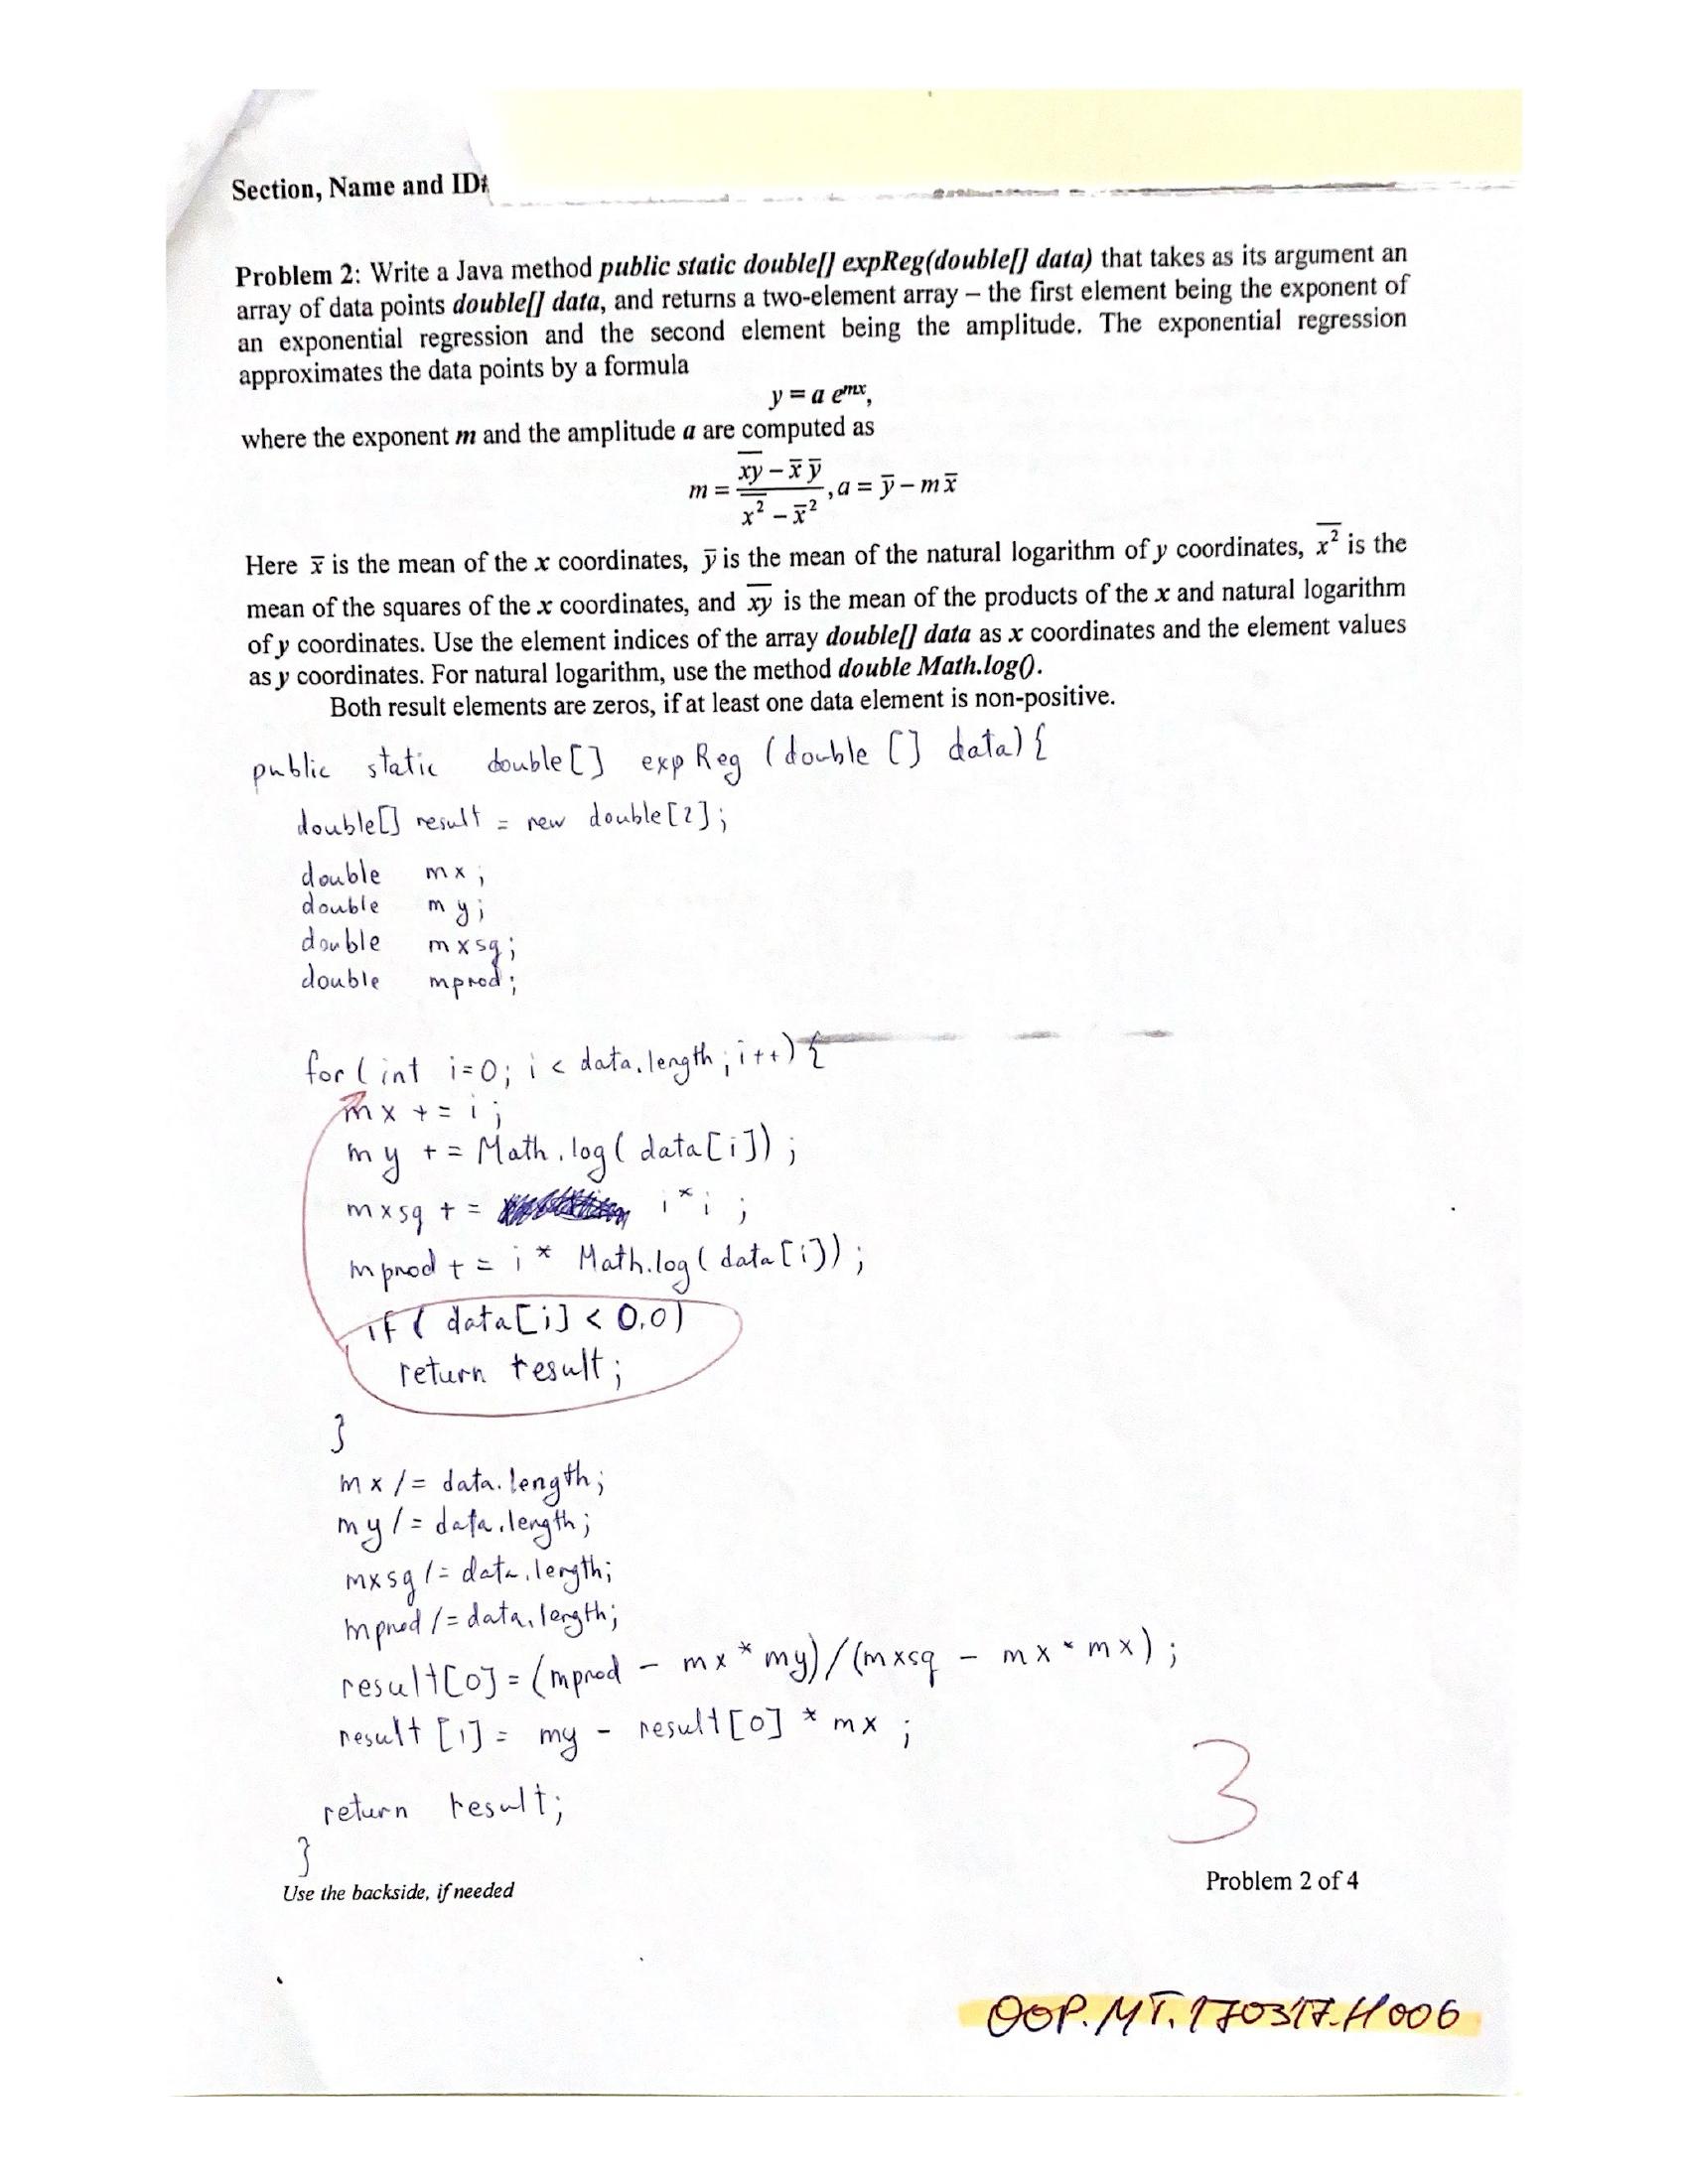 Section, Name and ID#
Problem 2: Write a Java method public static double[] expReg(double[] data) that takes as its argument an
array of data points double[] data, and returns a two-element array – the first element being the exponent of
an exponential regression and the second element being the amplitude. The exponential regression
approximates the data points by a formula
y = a e^{mx},
where the exponent m and the amplitude a are computed as
m = \frac{\overline{xy} - \bar{x}\,\bar{y}}{\overline{x^2} - \bar{x}^2}, a = \bar{y} - m\bar{x}
Here x̄ is the mean of the x coordinates, ȳ is the mean of the natural logarithm of y coordinates, \overline{x^2} is the
mean of the squares of the x coordinates, and \overline{xy} is the mean of the products of the x and natural logarithm
of y coordinates. Use the element indices of the array double[] data as x coordinates and the element values
as y coordinates. For natural logarithm, use the method double Math.log().
Both result elements are zeros, if at least one data element is non-positive.
public static double[] expReg (double [] data) {
double[] result = new double[2];
double mx;
double my;
double mxsq;
double mprod;
for (int i=0; i < data.length; i++) {
mx += i;
my += Math.log( data[i]);
mxsq += i*i;
mprod += i * Math.log( data[i]);
if ( data[i] < 0.0)
return result;
}
mx /= data.length;
my /= data.length;
mxsq /= data.length;
mprod /= data.length;
result[0] = (mprod - mx * my)/(mxsq - mx * mx);
result [1] = my - result[0] * mx;
return result;
}
3
Use the backside, if needed
Problem 2 of 4
OOP.MT.170317.H006